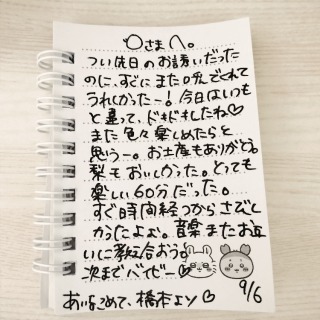 ○さまへ。
つい先日のお誘いだった
のに、すぐにまた呼んでくれて
うれしかったー!今日はいつも
と違って、ドキドキしたね♡
また色々楽しめたらと
思うー。お土産もありがとう。
梨もおいしかった。とっても
楽しい60分だった。
すぐ時間経つからさびし
かったよぉ。音楽またお互
いに教え合おうね
次までバイビー♡
あいをこめて、橋本より♡
9/6